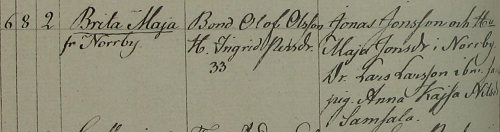 6 8 2 Brita Maja Bond. Olof Olsson Jonas Jonsson och Hu
fr Norrby. H. Ingrid Persdr. Maja Jonsdr i Norrby.
33 Dr. Lars Larsson ibm.
pig. Anna Kajsa Nilsd
Samsala.